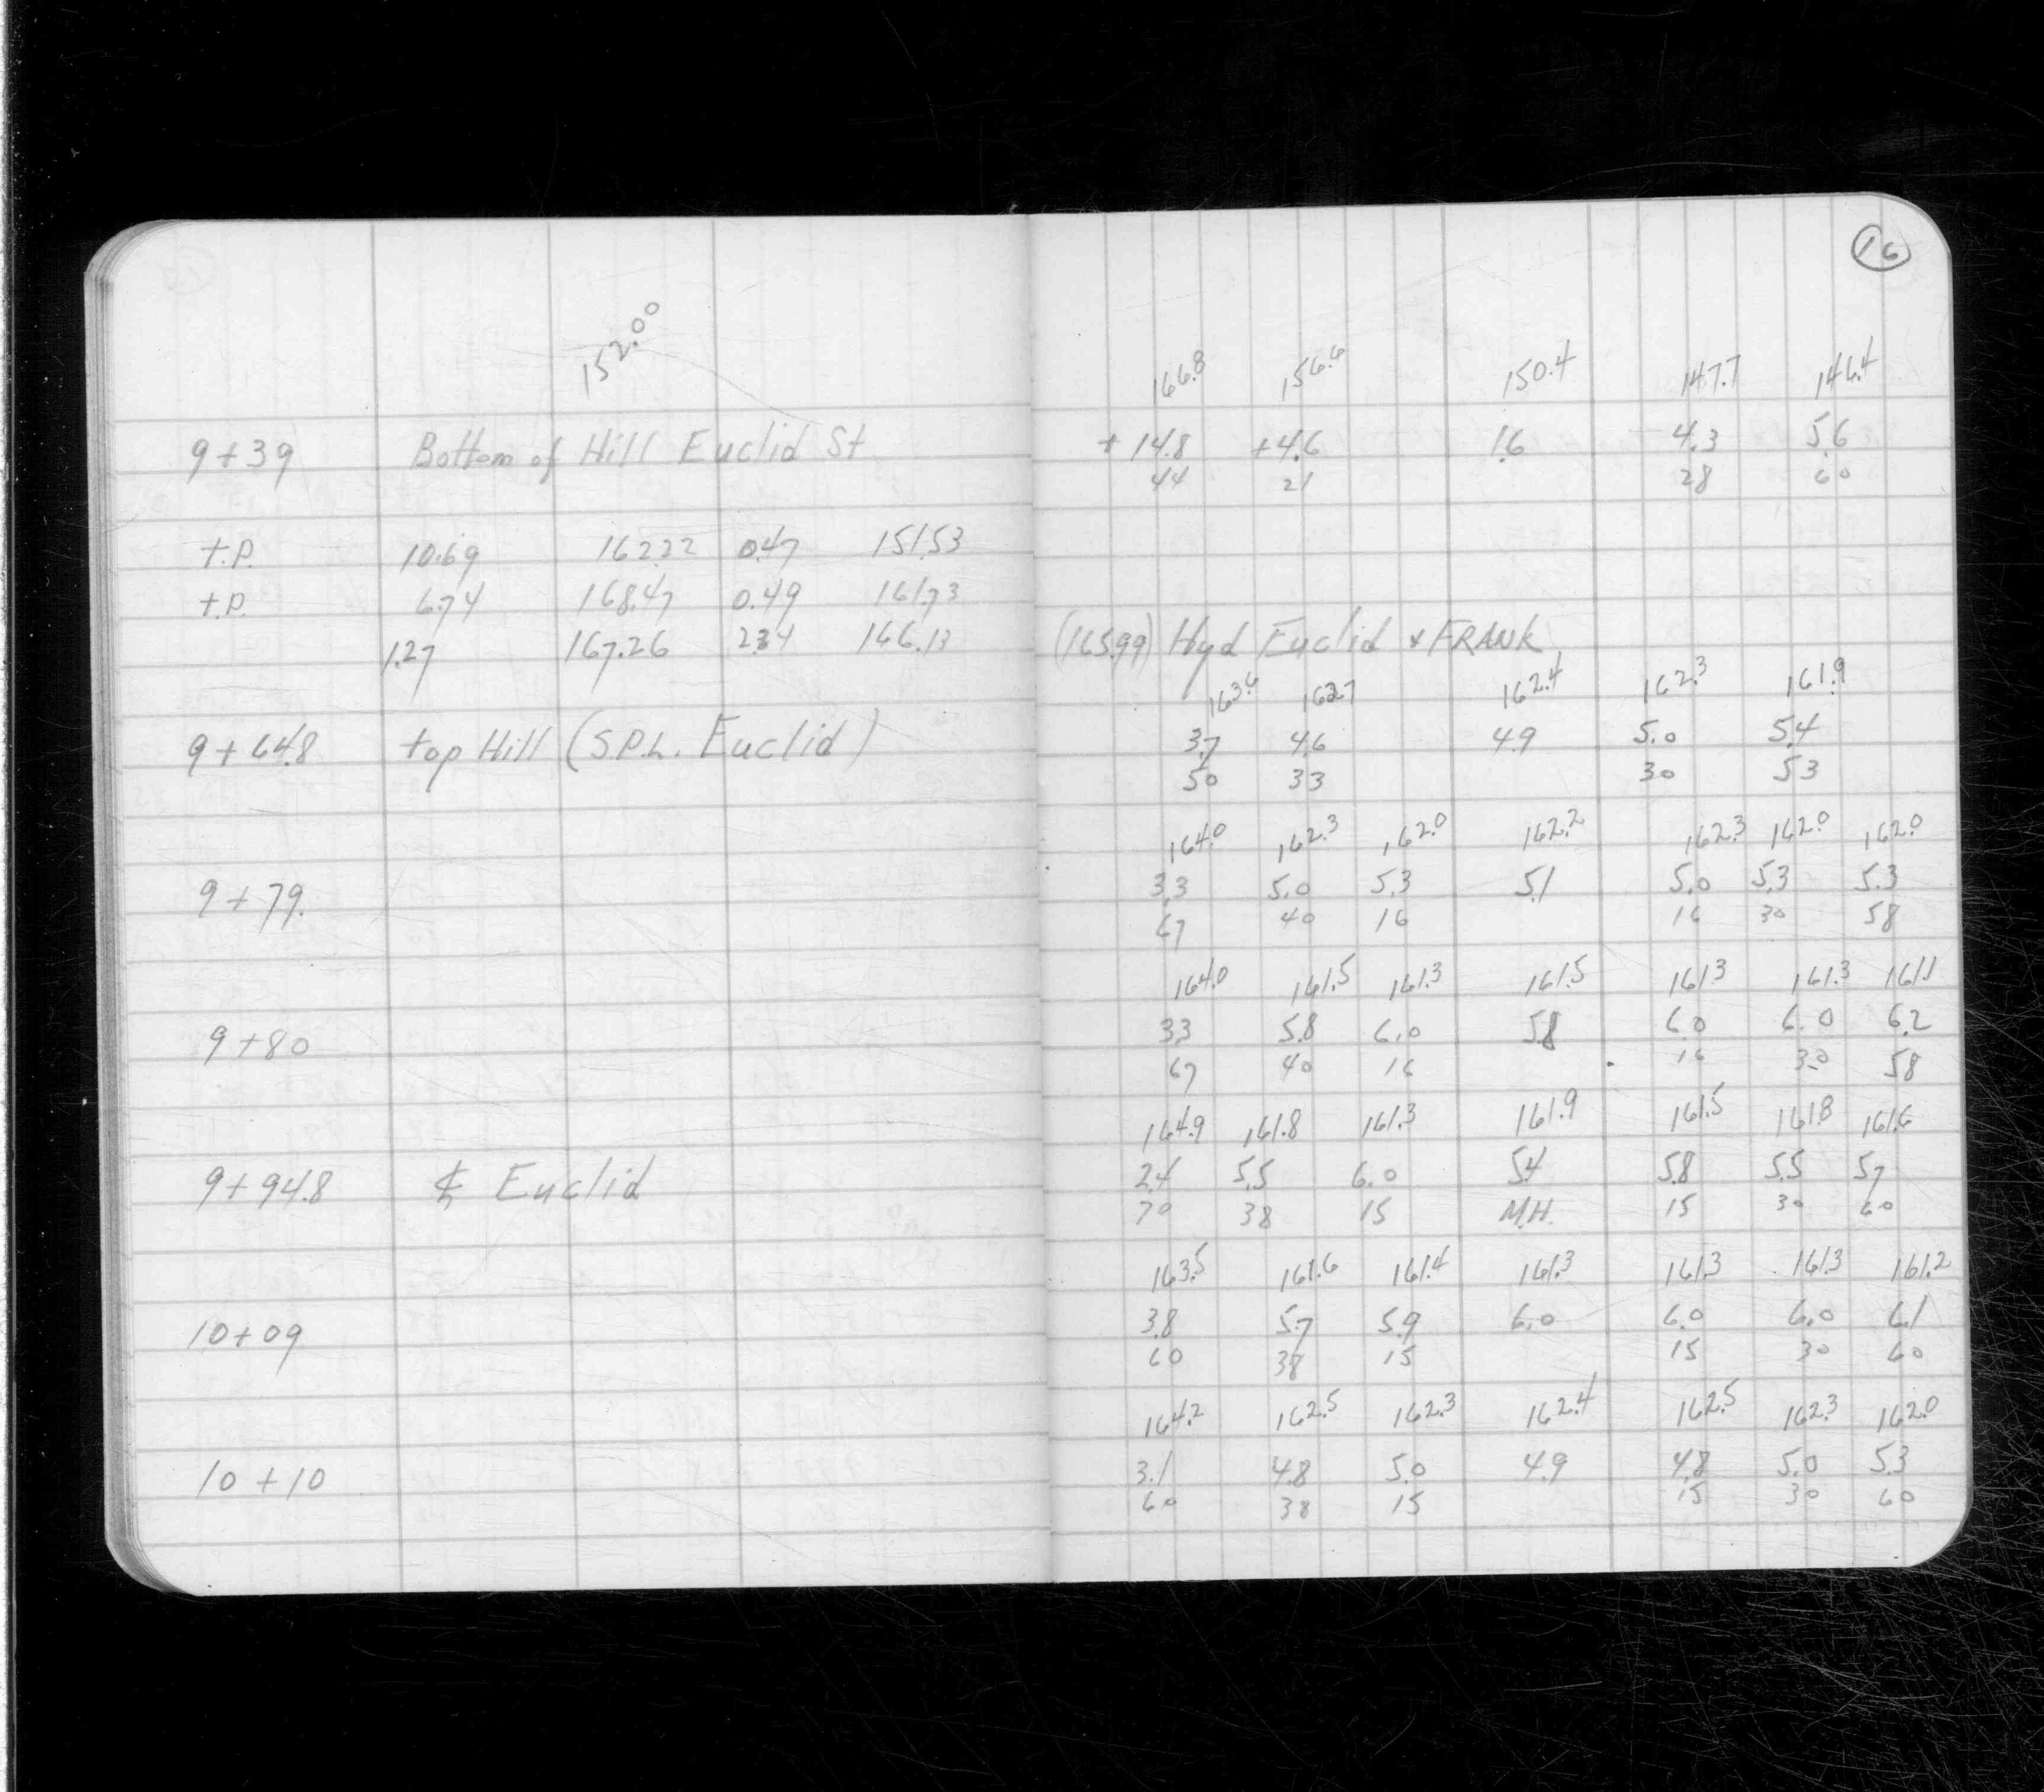 16
152.00
166.8 156.6 150.4 147.7 146.4
9+39 Bottom of Hill Euclid St +14.8 +4.6 1.6 4.3 5.6
44 21 28 60
T.P. 10.69 162.22 0.47 151.53
T.P. 6.74 168.47 0.49 161.73
1.27 167.26 2.34 166.13 (165.99) Hyd Euclid & FRANK
163.6 162.7 162.4 162.3 161.9
9+64.8 top Hill (S.P.L. Euclid) 3.7 4.6 4.9 5.0 5.4
50 33 30 53
164.0 162.3 162.0 162.2 162.3 162.0 162.0
9+79. 3.3 5.0 5.3 5.1 5.0 5.3 5.3
67 40 16 16 30 58
164.0 161.5 161.3 161.5 161.3 161.3 161.1
9+80 3.3 5.8 6.0 5.8 6.0 6.0 6.2
67 40 16 16 30 58
164.9 161.8 161.3 161.9 161.5 161.8 161.6
9+94.8 ℄ Euclid 2.4 5.5 6.0 5.4 5.8 5.5 5.7
70 38 15 M.H. 15 30 60
163.5 161.6 161.4 161.3 161.3 161.3 161.2
10+09 3.8 5.7 5.9 6.0 6.0 6.0 6.1
60 38 15 15 30 60
164.2 162.5 162.3 162.4 162.5 162.3 162.0
10+10 3.1 4.8 5.0 4.9 4.8 5.0 5.3
60 38 15 15 30 60